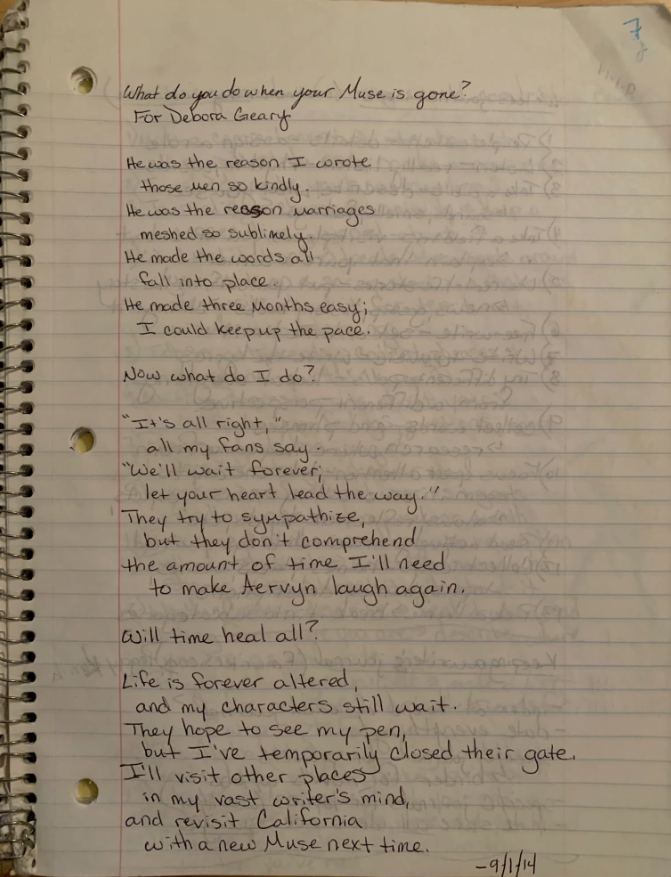 7
8
What do you do when your Muse is gone?
For Debora Geary
He was the reason I wrote
those men so kindly.
He was the reason marriages
meshed so sublimely.
He made the words all
fall into place.
He made three months easy;
I could keep up the pace.
Now what do I do?
"It's all right,"
all my fans say.
"We'll wait forever;
let your heart lead the way."
They try to sympathize,
but they don't comprehend
the amount of time I'll need
to make Aervyn laugh again.
Will time heal all?
Life is forever altered,
and my characters still wait.
They hope to see my pen,
but I've temporarily closed their gate.
I'll visit other places
in my vast writer's mind,
and revisit California
with a new Muse next time.
-9/1/14